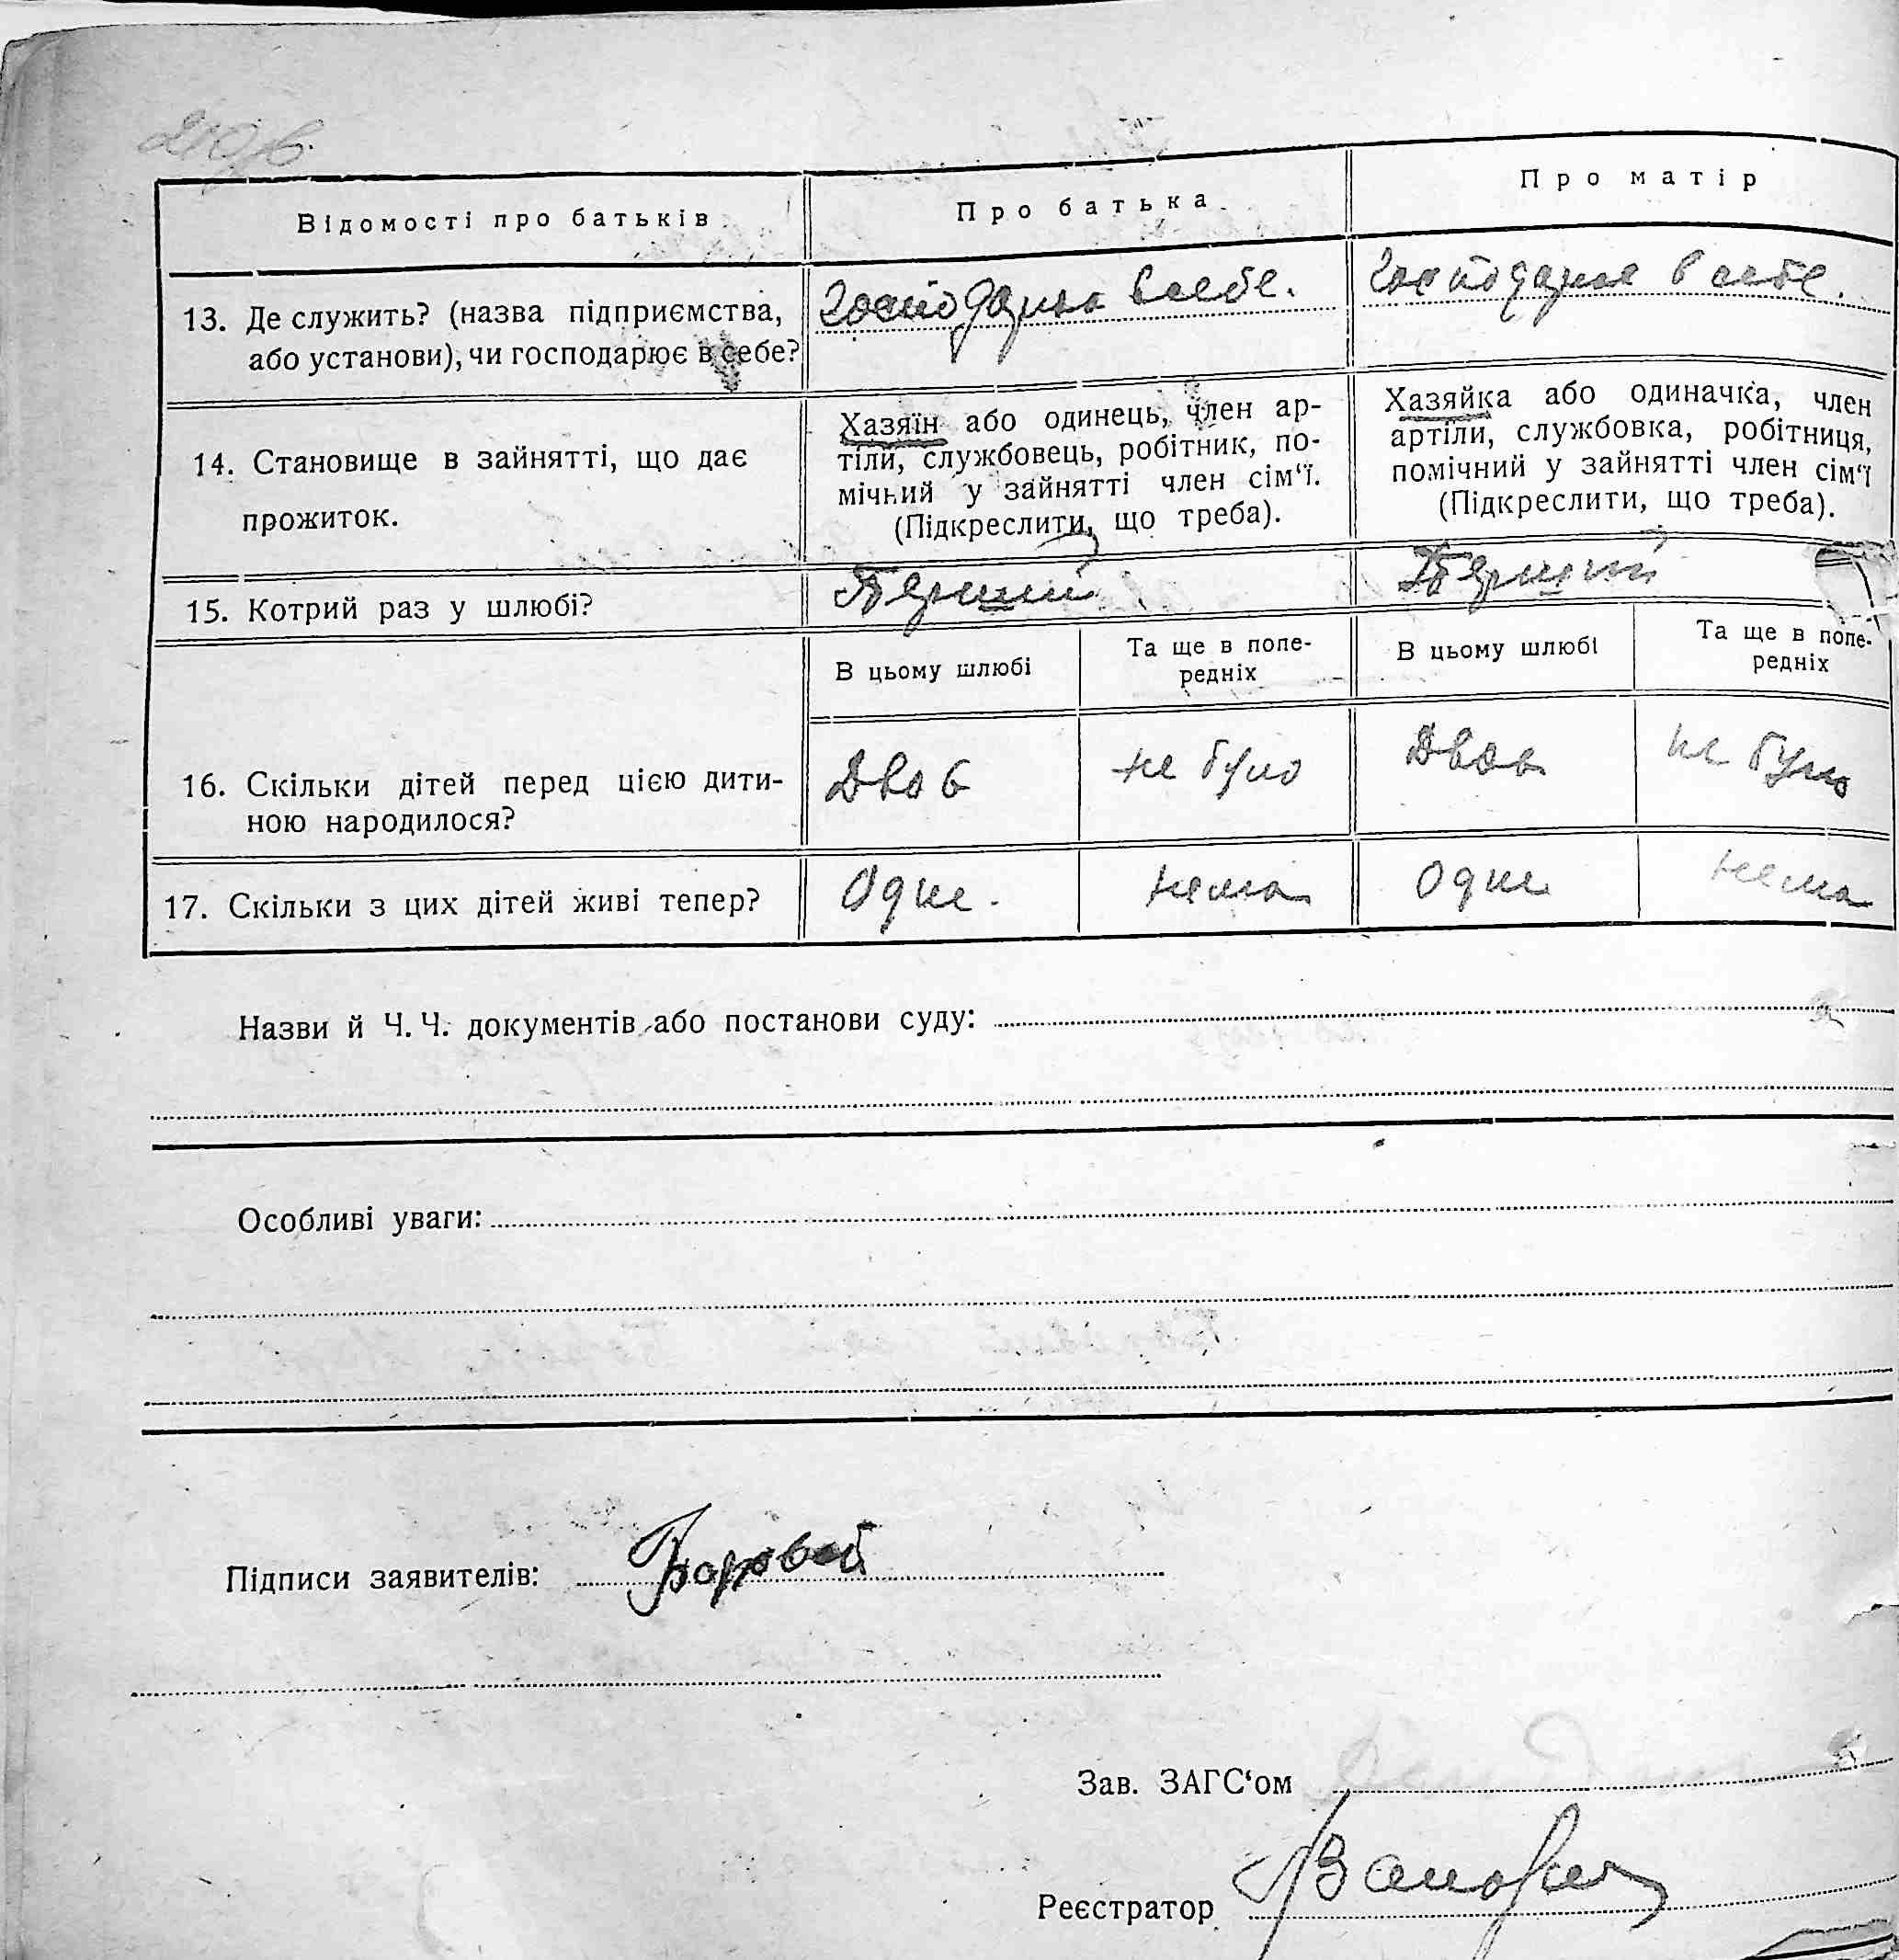 Відомості про батьків
Про батька
Про матір
13. Де служить? (назва підприємства,
або установи), чи господарює в себе?
Господарює в себе.
Господарює в себе.
14. Становище в зайнятті, що дає
прожиток.
Хазяїн або одинець, член ар-
тіли, службовець, робітник, по-
мічний у зайнятті член сім‘ї.
(Підкреслити, що треба).
Хазяйка або одиначка, член
артіли, службовка, робітниця,
помічний у зайнятті член сім‘ї
(Підкреслити, що треба).
15. Котрий раз у шлюбі?
Перший
Перший
В цьому шлюбі
Та ще в попе-
редніх
В цьому шлюбі
Та ще в попе-
редніх
16. Скільки дітей перед цією дити-
ною народилося?
Двоє
не було
Двоє
не було
17. Скільки з цих дітей живі тепер?
Одне.
нема
Одне
нема
Назви й Ч. Ч. документів або постанови суду:
Особливі уваги:
Підписи заявителів:
Боровой
Зав. ЗАГС‘ом
Реєстратор